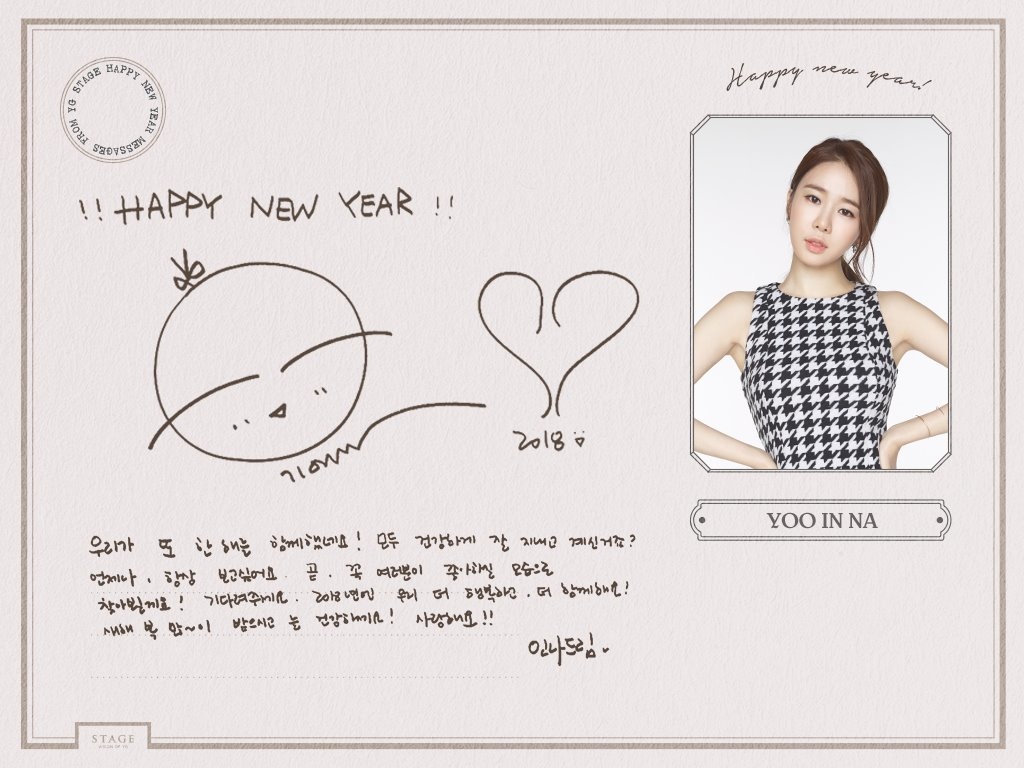 YG STAGE HAPPY NEW YEAR MESSAGES FROM
Happy new year!
!! HAPPY NEW YEAR !!
2018
YOO IN NA
우리가 또 한 해를 함께했네요! 모두 건강하게 잘 지내고 계신거죠?
언제나, 항상 보고싶어요. 곧, 꼭 여러분이 좋아하실 모습으로
찾아뵐게요! 기다려주세요. 2018년엔 우리 더 행복하고, 더 함께해요!
새해 복 많~이 받으시고 늘 건강하세요! 사랑해요!!
인나드림
STAGE